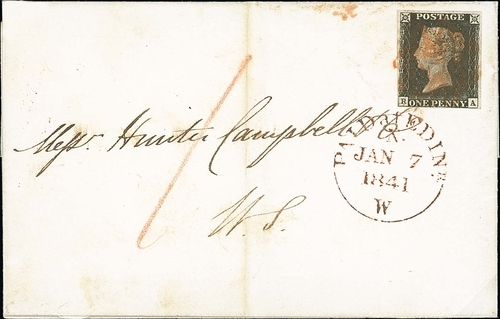 POSTAGE
R ONE PENNY A
Messrs Hunter Campbell & Co.
W. S.
PAID AT EDINR
JAN 7
1841
W